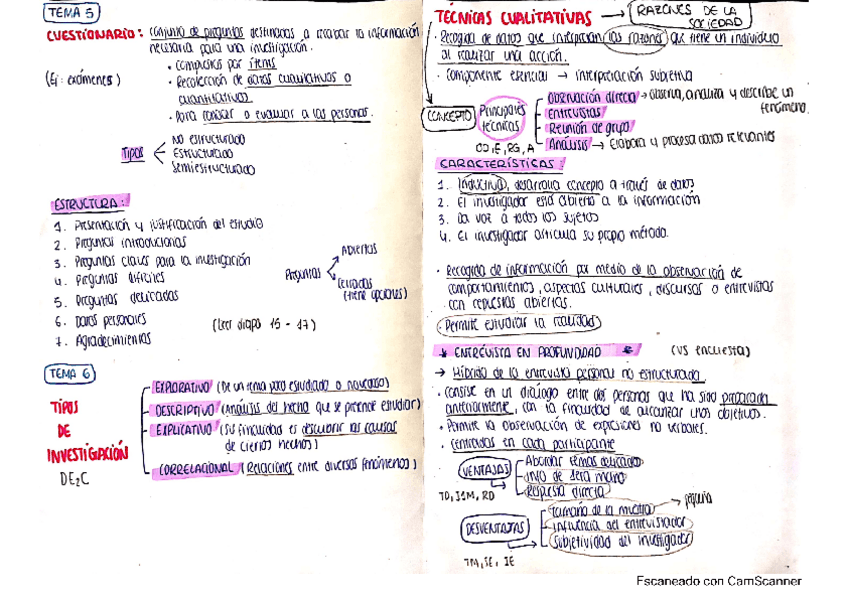 TEMA 5
CUESTIONARIO: conjunto de preguntas destinadas a recabar la información
necesaria para una investigación.
• compuestos por ítems
(Ej: exámenes)
• Recolección de datos cualitativos o
cuantitativos
• Para conocer o evaluar a las personas.
Tipos
No estructurado
Estructurado
Semiestructurado
ESTRUCTURA:
1. Presentación y justificación del estudio
2. Preguntas introductorias
3. Preguntas claves para la investigación
4. Preguntas difíciles
5. Preguntas delicadas
6. Datos personales
7. Agradecimientos
Preguntas
Abiertas
Cerradas
(tiene opciones)
(Leer diapo 15 - 17)
TEMA 6
TIPOS
DE
INVESTIGACIÓN
DE2C
EXPLORATIVO (De un tema poco estudiado o novedoso)
DESCRIPTIVO (Análisis del hecho que se pretende estudiar)
EXPLICATIVO (su finalidad es descubrir las causas
de ciertos hechos)
CORRELACIONAL (Relaciones entre diversos fenómenos)
TÉCNICAS CUALITATIVAS → RAZONES DE LA
SOCIEDAD
• Recogida de datos que interpretan las razones que tiene un individuo
al realizar una acción.
• Componente esencial → interpretación subjetiva
CONCEPTO
Principales
técnicas
OD, E, RG, A
Observación directa → observa, analiza y describe un
fenómeno.
Entrevistas
Reunión de grupo
Análisis → Elabora y procesa datos relevantes
CARACTERÍSTICAS:
1. Inductiva, desarrolla concepto a través de datos
2. El investigador está abierto a la información
3. Da voz a todos los sujetos
4. El investigador articula su propio método.
• Recogida de información por medio de la observación de
comportamientos, aspectos culturales, discursos o entrevistas
con repuestas abiertas.
Permite estudiar la realidad
ENTREVISTA EN PROFUNDIDAD (VS encuesta)
→ Híbrido de la entrevista personal no estructurada
• Consiste en un diálogo entre dos personas que ha sido preparada
anteriormente, con la finalidad de alcanzar unos objetivos.
• Permite la observación de expresiones no verbales.
• Centradas en cada participante
VENTAJAS
TD, I1M, RD
Abordar temas delicados
Info de 1era mano
Respuesta directa
DESVENTAJAS
TM, IE, IE
Tamaño de la muestra → pequeña
Influencia del entrevistador
Subjetividad del investigador
Escaneado con CamScanner